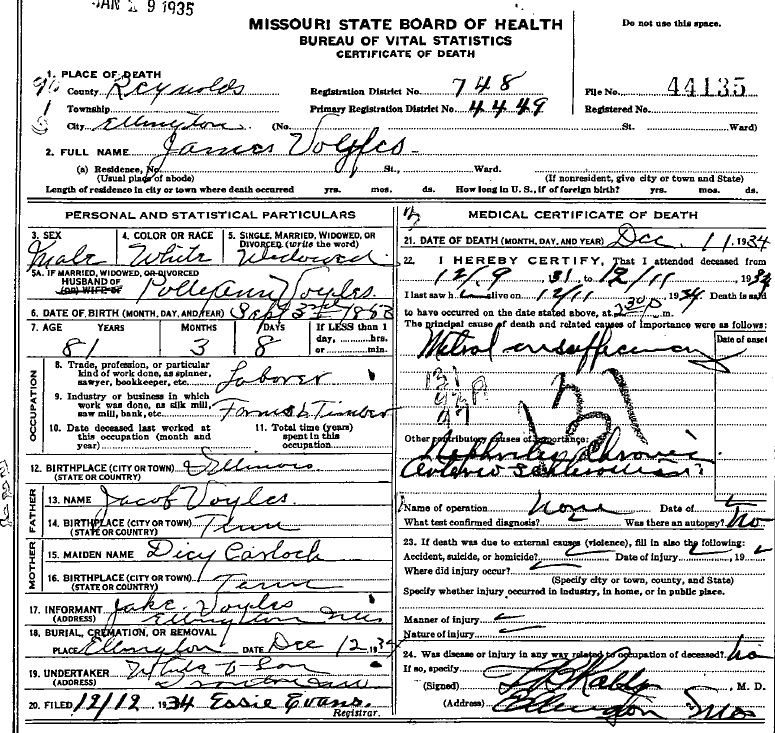 JAN 29 1935
MISSOURI STATE BOARD OF HEALTH
BUREAU OF VITAL STATISTICS
CERTIFICATE OF DEATH
Do not use this space.
1. PLACE OF DEATH
County Reynolds
Township
City Ellington (No. St. Ward)
Registration District No. 748
Primary Registration District No. 4449
File No. 44135
Registered No.
2. FULL NAME James Voyles
(a) Residence, No. St., Ward.
(Usual place of abode) (If nonresident, give city or town and State)
Length of residence in city or town where death occurred yrs. mos. ds. How long in U. S., if of foreign birth? yrs. mos. ds.
PERSONAL AND STATISTICAL PARTICULARS
3. SEX Male
4. COLOR OR RACE White
5. SINGLE, MARRIED, WIDOWED, OR DIVORCED (write the word) Widowed
5A. IF MARRIED, WIDOWED, OR DIVORCED
HUSBAND OF
(OR) WIFE OF Polly Ann Voyles
6. DATE OF BIRTH (MONTH, DAY, AND YEAR) Sept 3rd 1853
7. AGE YEARS MONTHS DAYS If LESS than 1 day, hrs. or min.
81 3 8
OCCUPATION
8. Trade, profession, or particular kind of work done, as spinner, sawyer, bookkeeper, etc. Laborer
9. Industry or business in which work was done, as silk mill, saw mill, bank, etc. Farm & Timber
10. Date deceased last worked at this occupation (month and year)
11. Total time (years) spent in this occupation
12. BIRTHPLACE (CITY OR TOWN) Illinois
(STATE OR COUNTRY)
FATHER
13. NAME Jacob Voyles
14. BIRTHPLACE (CITY OR TOWN) Tenn
(STATE OR COUNTRY)
MOTHER
15. MAIDEN NAME Dicy Carlock
16. BIRTHPLACE (CITY OR TOWN) Tenn
(STATE OR COUNTRY)
17. INFORMANT Jake Voyles
(ADDRESS) Ellington Mo
18. BURIAL, CREMATION, OR REMOVAL
PLACE Ellington DATE Dec 12 1934
19. UNDERTAKER & Son
(ADDRESS)
20. FILED 12/12 1934 Essie Evans
Registrar.
MEDICAL CERTIFICATE OF DEATH
21. DATE OF DEATH (MONTH, DAY, AND YEAR) Dec 11 1934
22. I HEREBY CERTIFY, That I attended deceased from
12/9 31 to 12/11 1934
I last saw h alive on 12/11 1934 Death is said
to have occurred on the date stated above, at 2:30 P m.
The principal cause of death and related causes of importance were as follows:
Date of onset
Mitral insufficiency
131
97
131
Other contributory causes of importance:
Nephritis Chronic
Arterio Sclerosis
Name of operation None Date of
What test confirmed diagnosis? Was there an autopsy? No
23. If death was due to external causes (violence), fill in also the following:
Accident, suicide, or homicide? Date of injury , 19
Where did injury occur?
(Specify city or town, county, and State)
Specify whether injury occurred in industry, in home, or in public place.
Manner of injury
Nature of injury
24. Was disease or injury in any way related to occupation of deceased? No
If so, specify
(Signed) M. D.
(Address) Ellington Mo